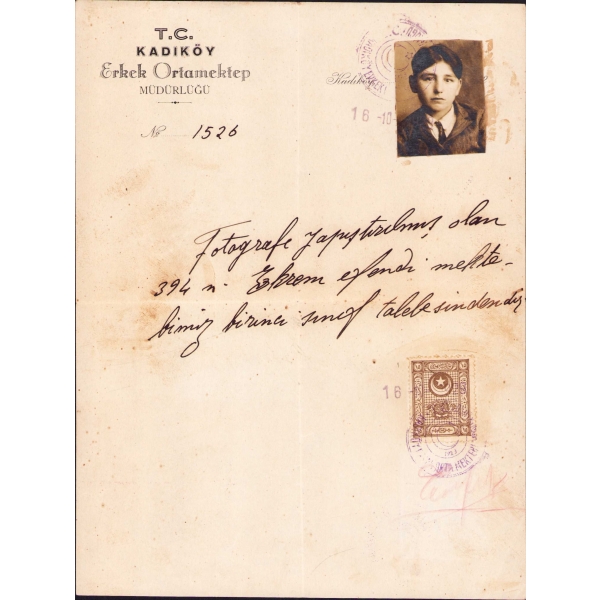 T.C.
KADIKÖY
Erkek Ortamektep
MÜDÜRLÜĞÜ
Kadıköy
16 -10-
No 1526
Fotografe yapıştırılmış olan
394 n. Ekrem efendi mekte-
bimiz birinci sınıf talebesindendir
16 -